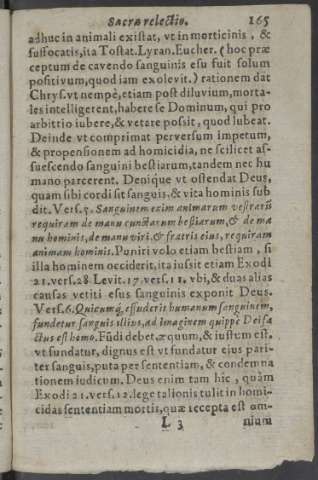 Sacræ relectio. 165
adhuc in animali existat, vt in morticinis, &
suffocatis, ita Tostat. Lyran. Eucher. (hoc præ
ceptum de cavendo sanguinis esu fuit solum
positivum, quod iam exolevit.) rationem dat
Chrys. vt nempè, etiam post diluvium, morta-
les intelligerent, habere se Dominum, qui pro
arbitrio iubere, & vetare possit, quod lubeat.
Deinde vt comprimat perversum impetum,
& propensionem ad homicidia, ne scilicet as-
suescendo sanguini bestiarum, tandem nec hu
mano parcerent. Denique vt ostendat Deus,
quam sibi cordi sit sanguis, & vita hominis sub
dit. Vers. 5. Sanguinem enim animarum vestrarũ
requiram de manu cunctarum bestiarum, & de ma
nu hominis, de manu viri, & fratris eius, requiram
animam hominis. Puniri volo etiam bestiam, si
illa hominem occiderit, ita iussit etiam Exodi
21. vers. 28 Levit. 17. vers. 11. vbi, & duas alias
causas vetiti esus sanguinis exponit Deus.
Vers. 6. Quicumq́, effuderit humanum sanguinem,
fundetur sanguis illius, ad Imaginem quippè Dei fa
ctus est homo. Fũdi debet, æquum, & iustum est,
vt fundatur, dignus est vt fundatur eius pari-
ter sanguis, puta per sententiam, & condemna
tionem iudicum. Deus enim tam hîc, quàm
Exodi 21. vers. 12. lege talionis tulit in homi-
cidas sententiam mortis, quæ recepta est om-
L 3 nium